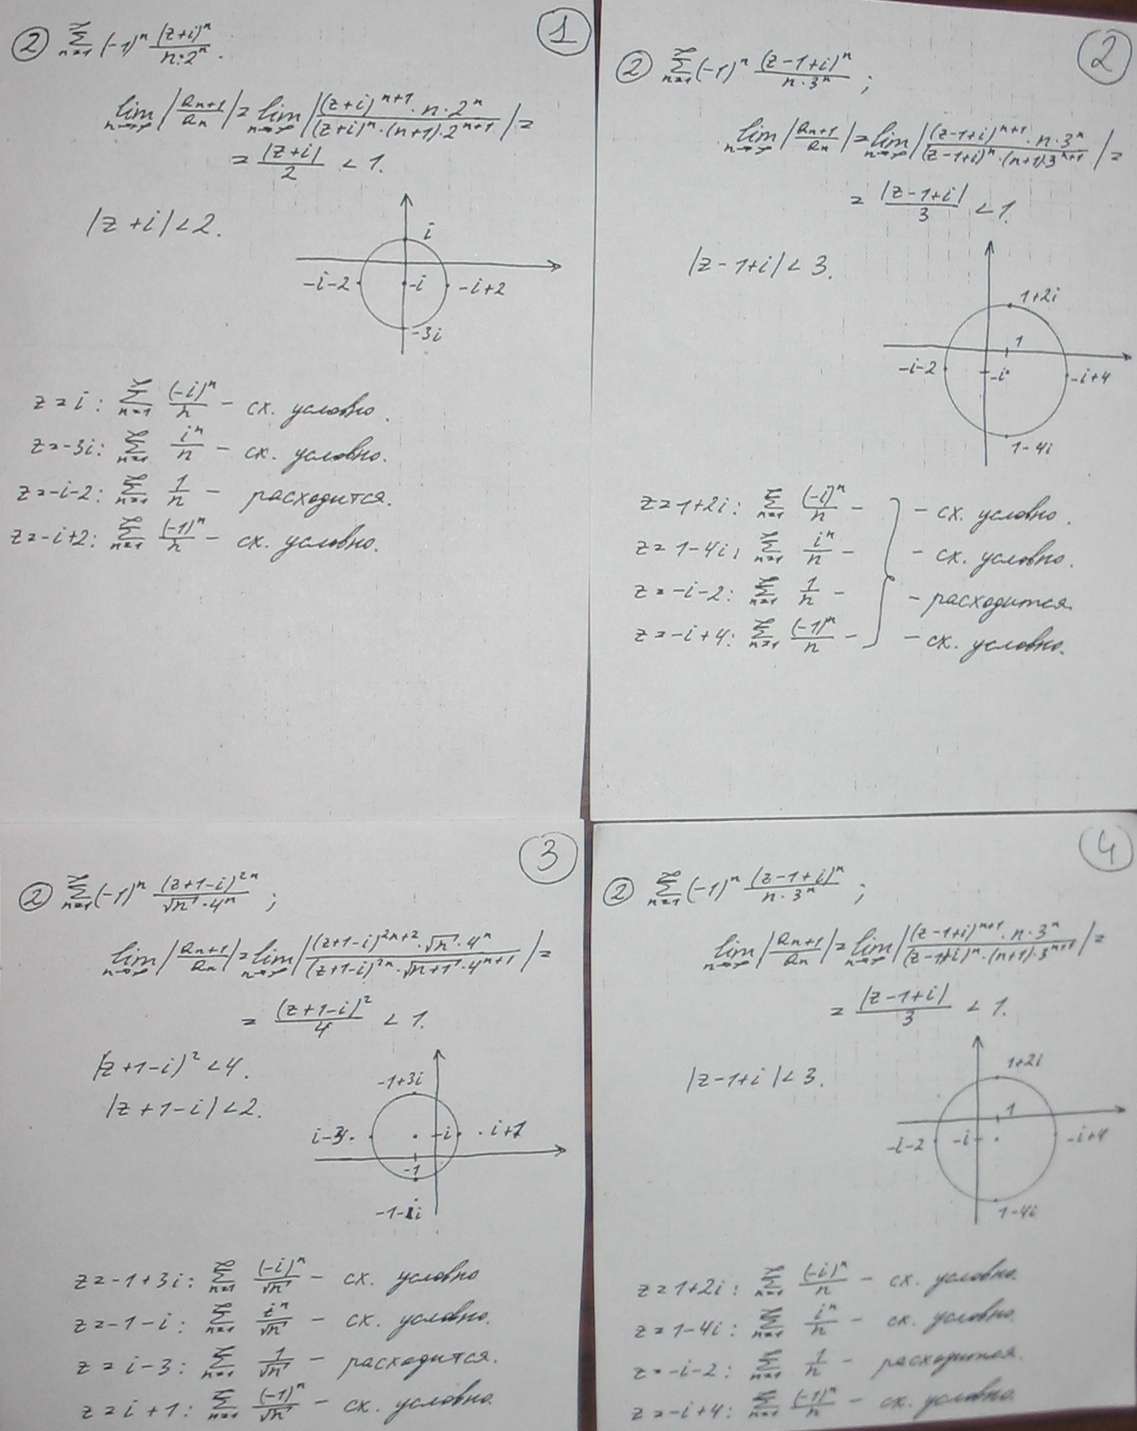 1
② ∑_{n=1}^{∞} (-1)^n (z+i)^n / (n·2^n).
lim_{n→∞} |a_{n+1}/a_n| = lim_{n→∞} |((z+i)^{n+1}·n·2^n) / ((z+i)^n·(n+1)·2^{n+1})| =
= |z+i|/2 < 1.
|z+i| < 2.
i
-i-2 -i -i+2
-3i
z=i: ∑_{n=1}^{∞} (-i)^n/n - сх. условно.
z=-3i: ∑_{n=1}^{∞} i^n/n - сх. условно.
z=-i-2: ∑_{n=1}^{∞} 1/n - расходится.
z=-i+2: ∑_{n=1}^{∞} (-1)^n/n - сх. условно.
2
② ∑_{n=1}^{∞} (-1)^n (z-1+i)^n / (n·3^n);
lim_{n→∞} |a_{n+1}/a_n| = lim_{n→∞} |((z-1+i)^{n+1}·n·3^n) / ((z-1+i)^n·(n+1)·3^{n+1})| =
= |z-1+i|/3 < 1.
|z-1+i| < 3.
1+2i
1
-i-2 -i -i+4
1-4i
z=1+2i: ∑_{n=1}^{∞} (-i)^n/n - - сх. условно.
z=1-4i: ∑_{n=1}^{∞} i^n/n - - сх. условно.
z=-i-2: ∑_{n=1}^{∞} 1/n - - расходится.
z=-i+4: ∑_{n=1}^{∞} (-1)^n/n - - сх. условно.
3
② ∑_{n=1}^{∞} (-1)^n (z+1-i)^{2n} / (√n·4^n);
lim_{n→∞} |a_{n+1}/a_n| = lim_{n→∞} |((z+1-i)^{2n+2}·√n·4^n) / ((z+1-i)^{2n}·√(n+1)·4^{n+1})| =
= (z+1-i)^2/4 < 1.
(z+1-i)^2 < 4.
|z+1-i| < 2.
-1+3i
i-3 i i+1
-1
-1-i
z=-1+3i: ∑_{n=1}^{∞} (-i)^n/√n - сх. условно
z=-1-i: ∑_{n=1}^{∞} i^n/√n - сх. условно.
z=i-3: ∑_{n=1}^{∞} 1/√n - расходится.
z=i+1: ∑_{n=1}^{∞} (-1)^n/√n - сх. условно.
4
② ∑_{n=1}^{∞} (-1)^n (z-1+i)^n / (n·3^n);
lim_{n→∞} |a_{n+1}/a_n| = lim_{n→∞} |((z-1+i)^{n+1}·n·3^n) / ((z-1+i)^n·(n+1)·3^{n+1})| =
= |z-1+i|/3 < 1.
|z-1+i| < 3.
1+2i
1
-i-2 -i -i+4
1-4i
z=1+2i: ∑_{n=1}^{∞} (-i)^n/n - сх. условно.
z=1-4i: ∑_{n=1}^{∞} i^n/n - сх. условно.
z=-i-2: ∑_{n=1}^{∞} 1/n - расходится.
z=-i+4: ∑_{n=1}^{∞} (-1)^n/n - сх. условно.